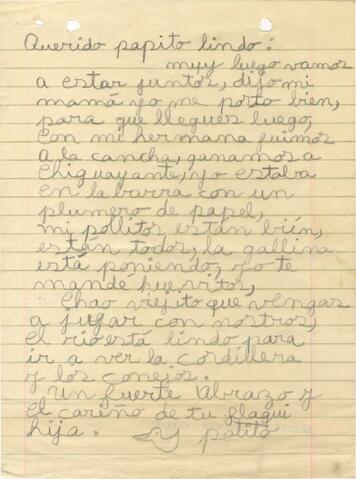 Querido papito lindo:
muy luego vamos
a estar juntos, dijo mi
mamá yo me porto bien,
para que llegues luego,
con mi hermana fuimos
a la cancha, ganamos a
Chiguayante, yo estaba
en la barra con un
plumero de papel,
mi pollitos están bien,
están todos, la gallina
está poniendo, yo te
mande huevitos,
Chao viejito que vengas
a jugar con nostros,
el río está lindo para
ir a ver la cordillera
y los conejos.
Un fuerte Abrazo y
el cariño de tu flaqui
hija. y patito